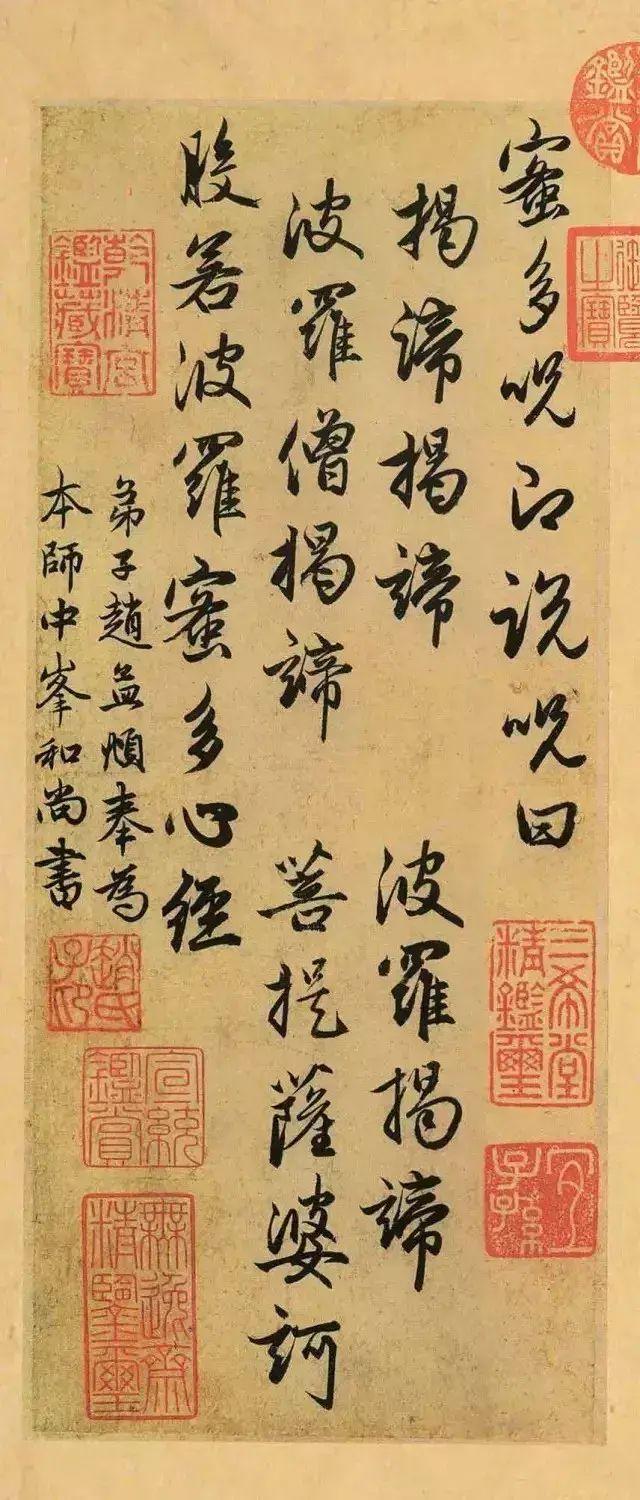 蜜多呪即說呪曰
揭諦揭諦　波羅揭諦
波羅僧揭諦　菩提薩婆訶
般若波羅蜜多心經
弟子趙孟頫奉為
本師中峯和尚書
鑑賞
之寶
三希堂精鑑璽
宜子孫
乾清宮鑑藏寶
趙氏子昂
宣統鑑賞
無逸齋精鑒璽